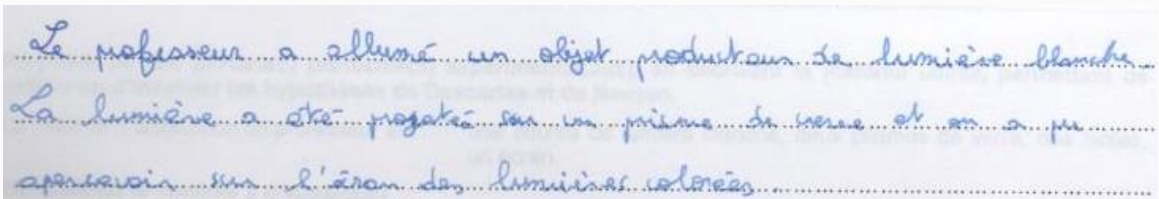 Le professeur a allumé un objet producteur de lumière blanche.
La lumière a été projeté sur un prisme de verre et on a pu
apercevoir sur l'écran des lumières colorées